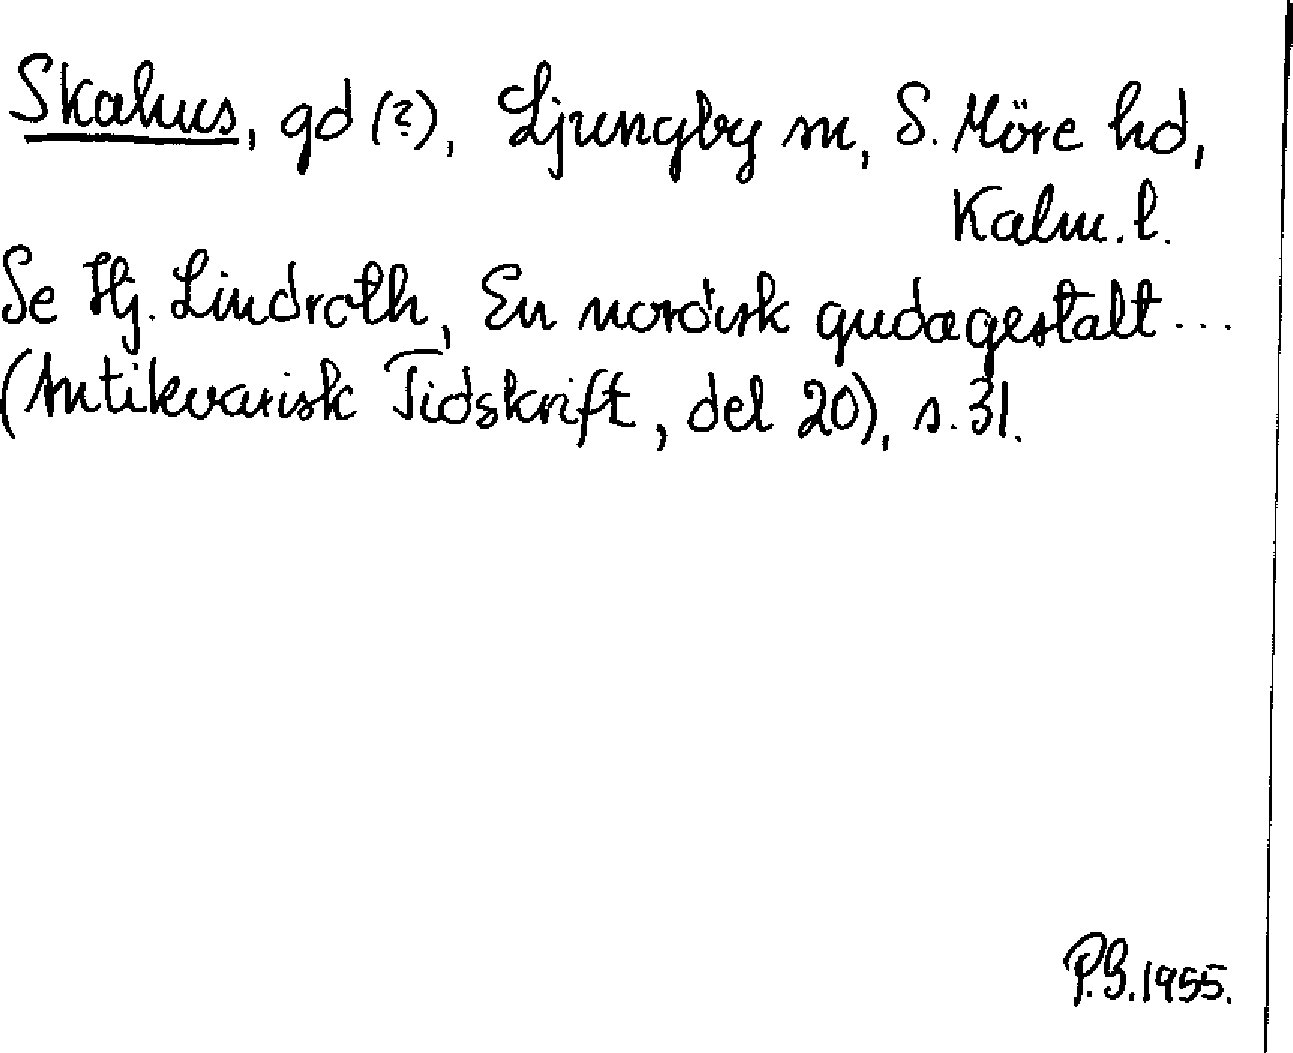 Skahus, gd (?), Ljungby sn, S. Möre hd,
Kalm. l.
Se Hj. Lindroth, En nordisk gudagestalt ...
(Antikvarisk Tidskrift, del 20), s. 31.
P.G. 1955.